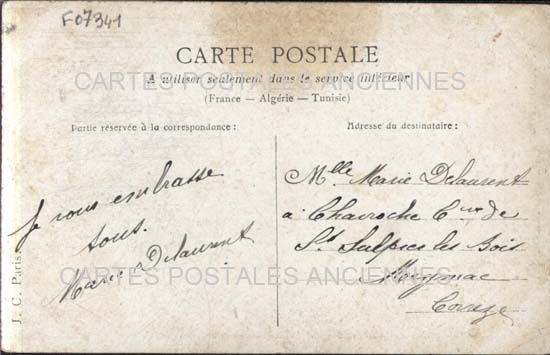 F07341
CARTE POSTALE
A utiliser seulement dans le service intérieur
(France — Algérie — Tunisie)
CARTES POSTALES ANCIENNES
Partie réservée à la correspondance :
Adresse du destinataire :
Je vous embrasse
tous.
Marie Delaurent
Mlle Marie Delaurent
à Chavroche Cne de
St Sulpice les Bois
Meymac
Corrèze
CARTES POSTALES ANCIENNES
J. C. Paris